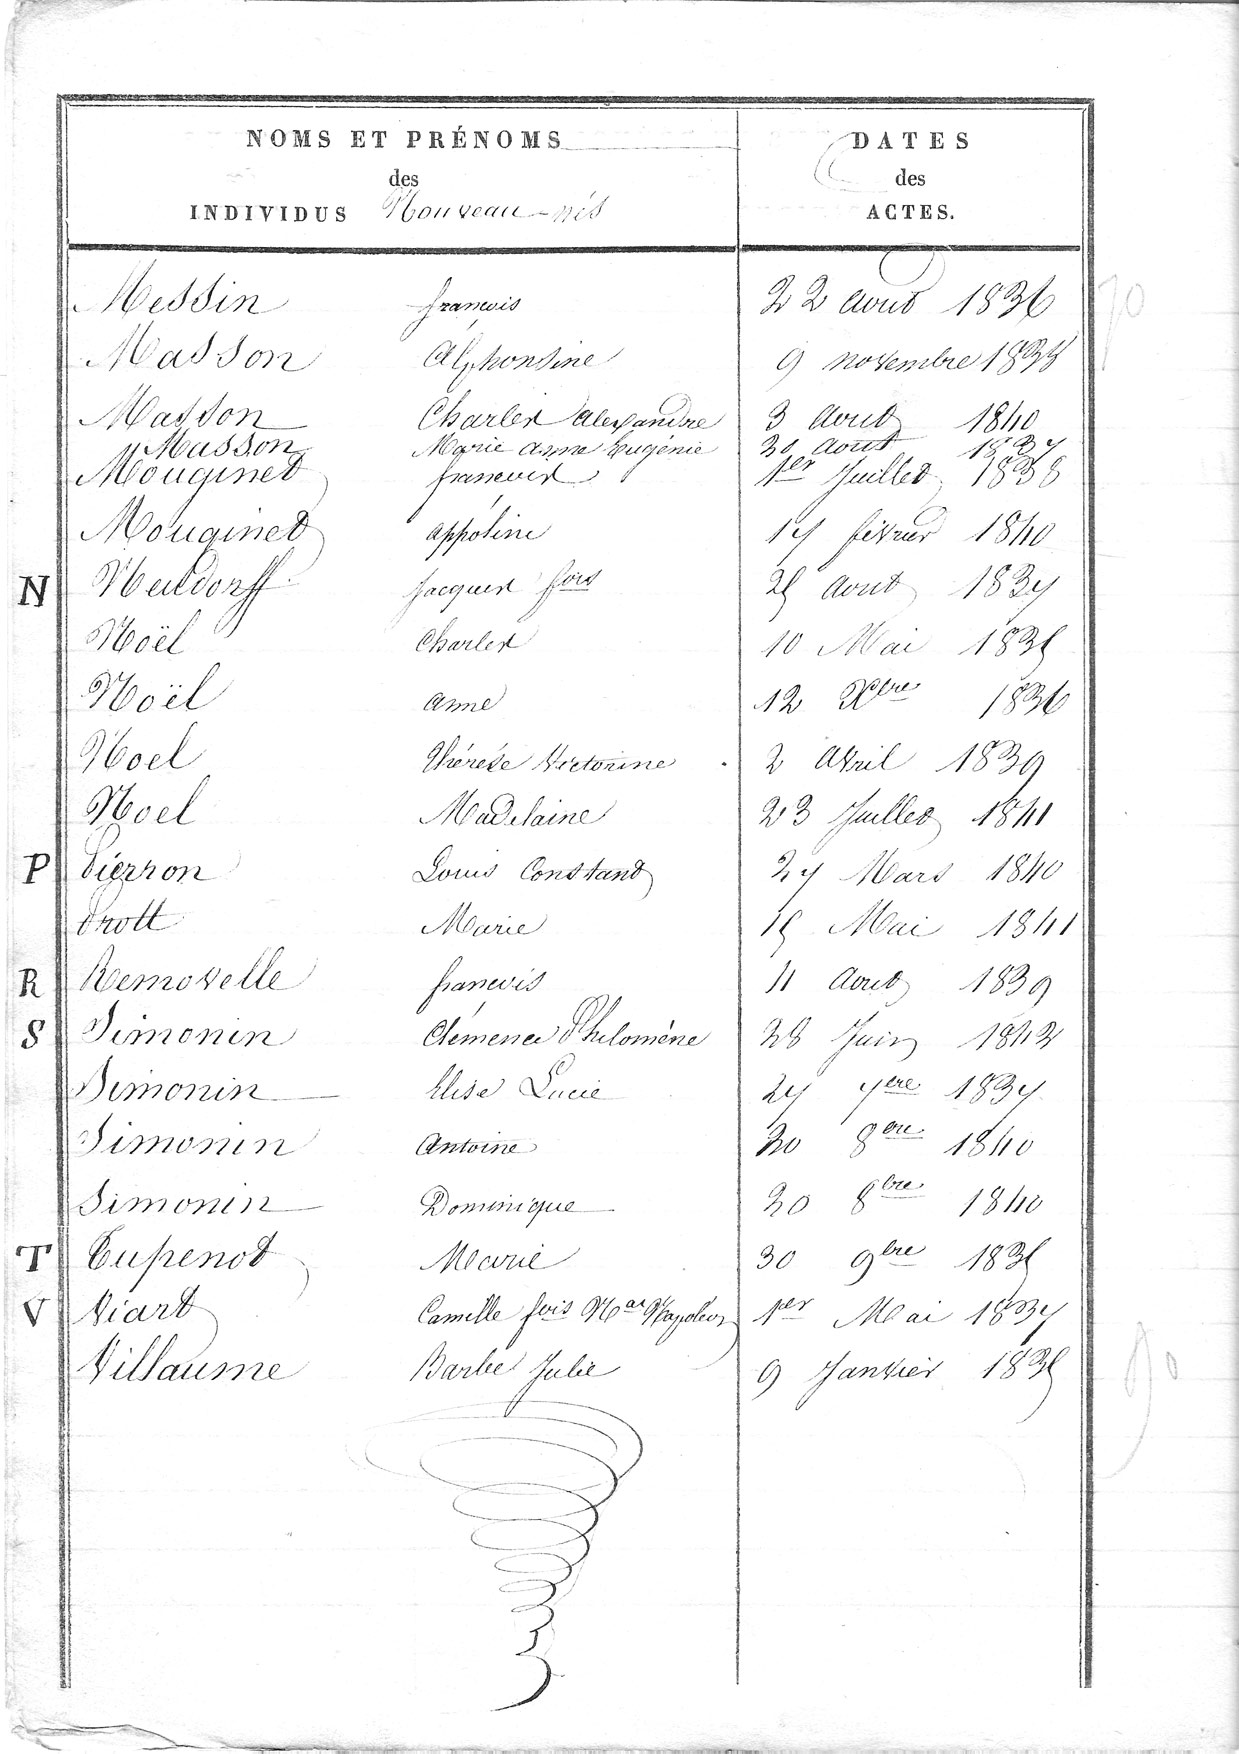 NOMS ET PRÉNOMS DATES
des des
INDIVIDUS Nouveau-nés ACTES.
Messin francois 22 aout 1836
Masson Alphonsine 9 novembre 1838
Masson Charles alexandre 3 aout 1840
Masson Marie anne Eugénie 30 aout 1837
Mouginet francois 1er Juillet 1838
Mouginet appoline 17 février 1840
N Neudorff Jacques fois 25 aout 1837
Noël Charles 10 Mai 1835
Noël anne 12 Xbre 1836
Noel thérése Victorine 2 Avril 1839
Noel Madelaine 23 Juillet 1841
P Pierron Louis Constant 27 Mars 1840
Prott Marie 15 Mai 1841
R Removelle francois 11 Aout 1839
S Simonin Clémence Philomène 28 Juin 1842
Simonin Elise Lucie 27 7bre 1837
Simonin Antoine 30 8bre 1840
Simonin Dominique 30 8bre 1840
T Tupenot Marie 30 9bre 1835
V Viart Camille fois Nas Napoléon 1er Mai 1837
Villaume Barbe Julie 9 Janvier 1835
90